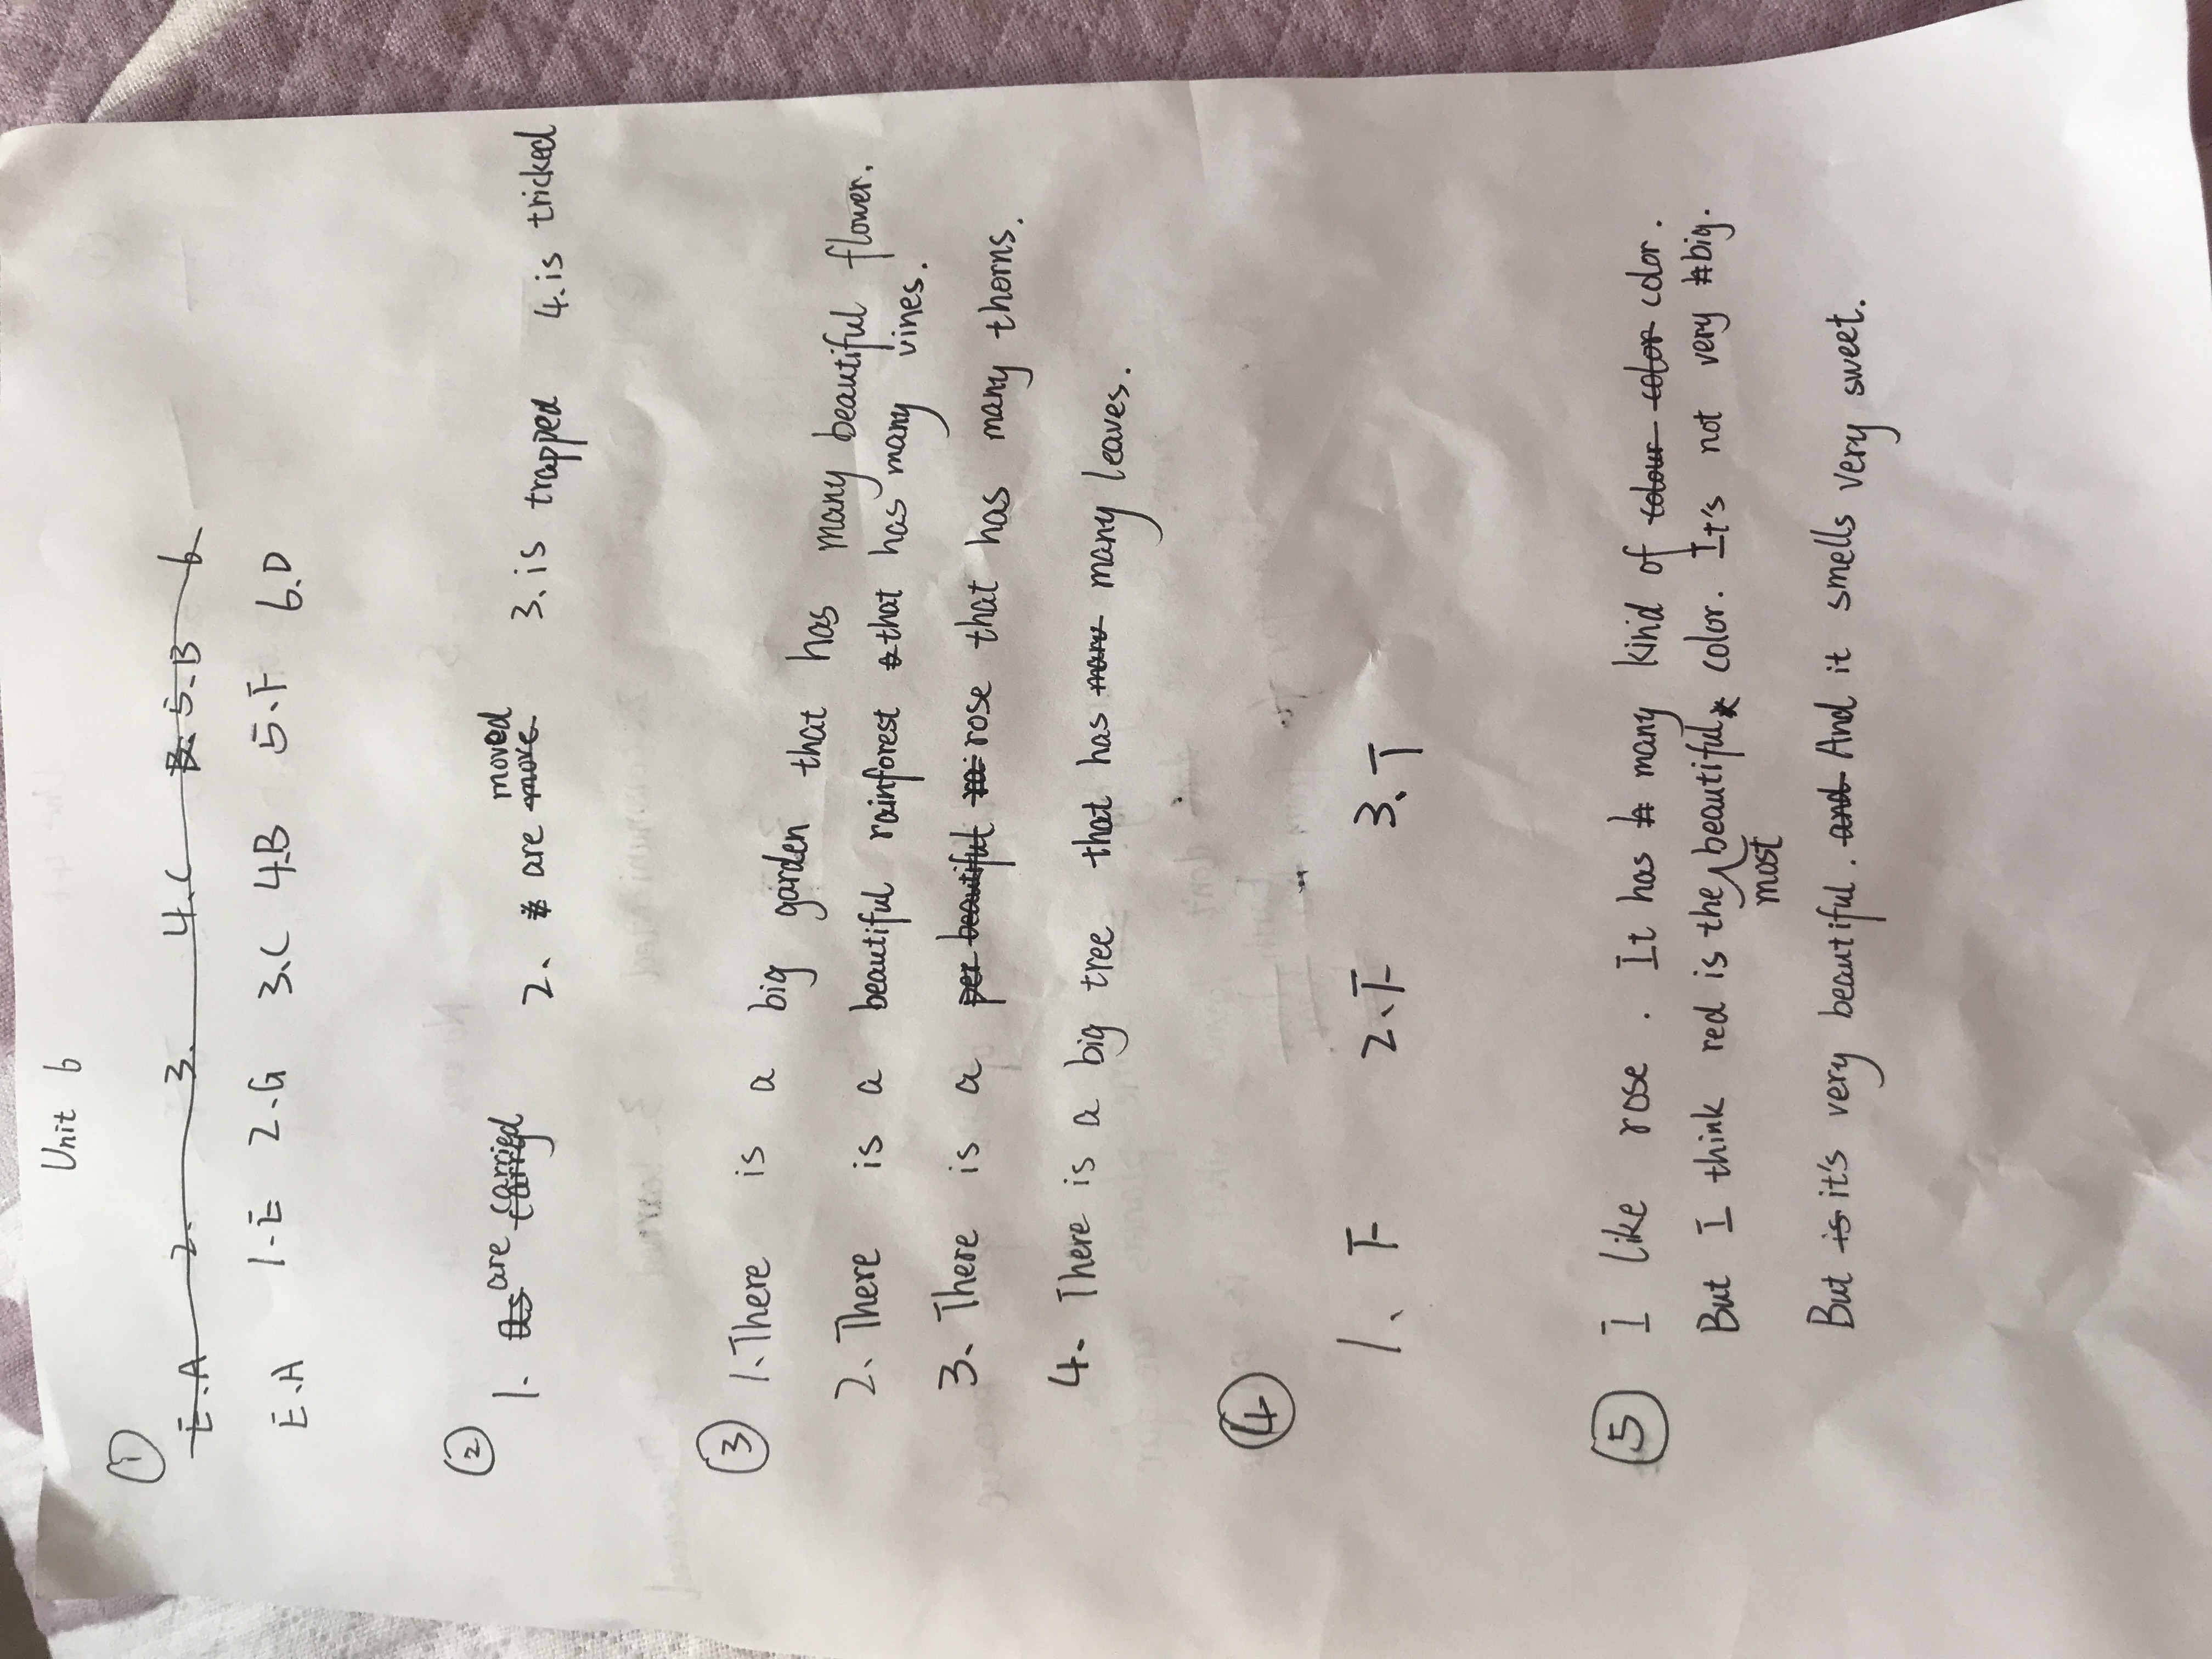 Unit 6
①
E.A 2. 3. 4.C 5.B 6
E.A 1.E 2.G 3.C 4.B 5.F 6.D
②
1. as are carry carried 2. are move moved 3. is trapped 4. is tricked
③ 1. There is a big garden that has many beautiful flower.
2. There is a beautiful rainforest that has many vines.
3. There is a per beautiful ra rose that has many thorns.
4. There is a big tree that has many leaves.
④
1. F 2. F 3. T
⑤ I like rose. It has many kind of colour color color.
But I think red is the most beautiful color. It's not very big.
But is it's very beautiful. and And it smells very sweet.